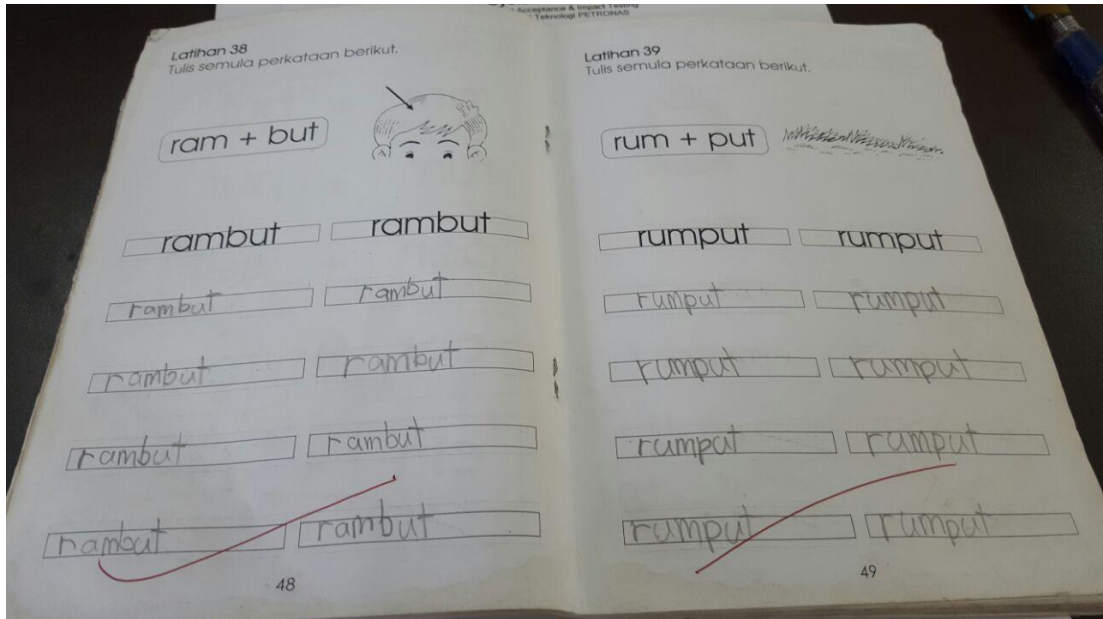 Acceptance & Impact Testing
Teknologi PETRONAS
Latihan 38
Tulis semula perkataan berikut.
ram + but
rambut rambut
rambut rambut
rambut rambut
rambut rambut
rambut rambut
48
Latihan 39
Tulis semula perkataan berikut.
rum + put
rumput rumput
rumput rumput
rumput rumput
rumput rumput
rumput rumput
49